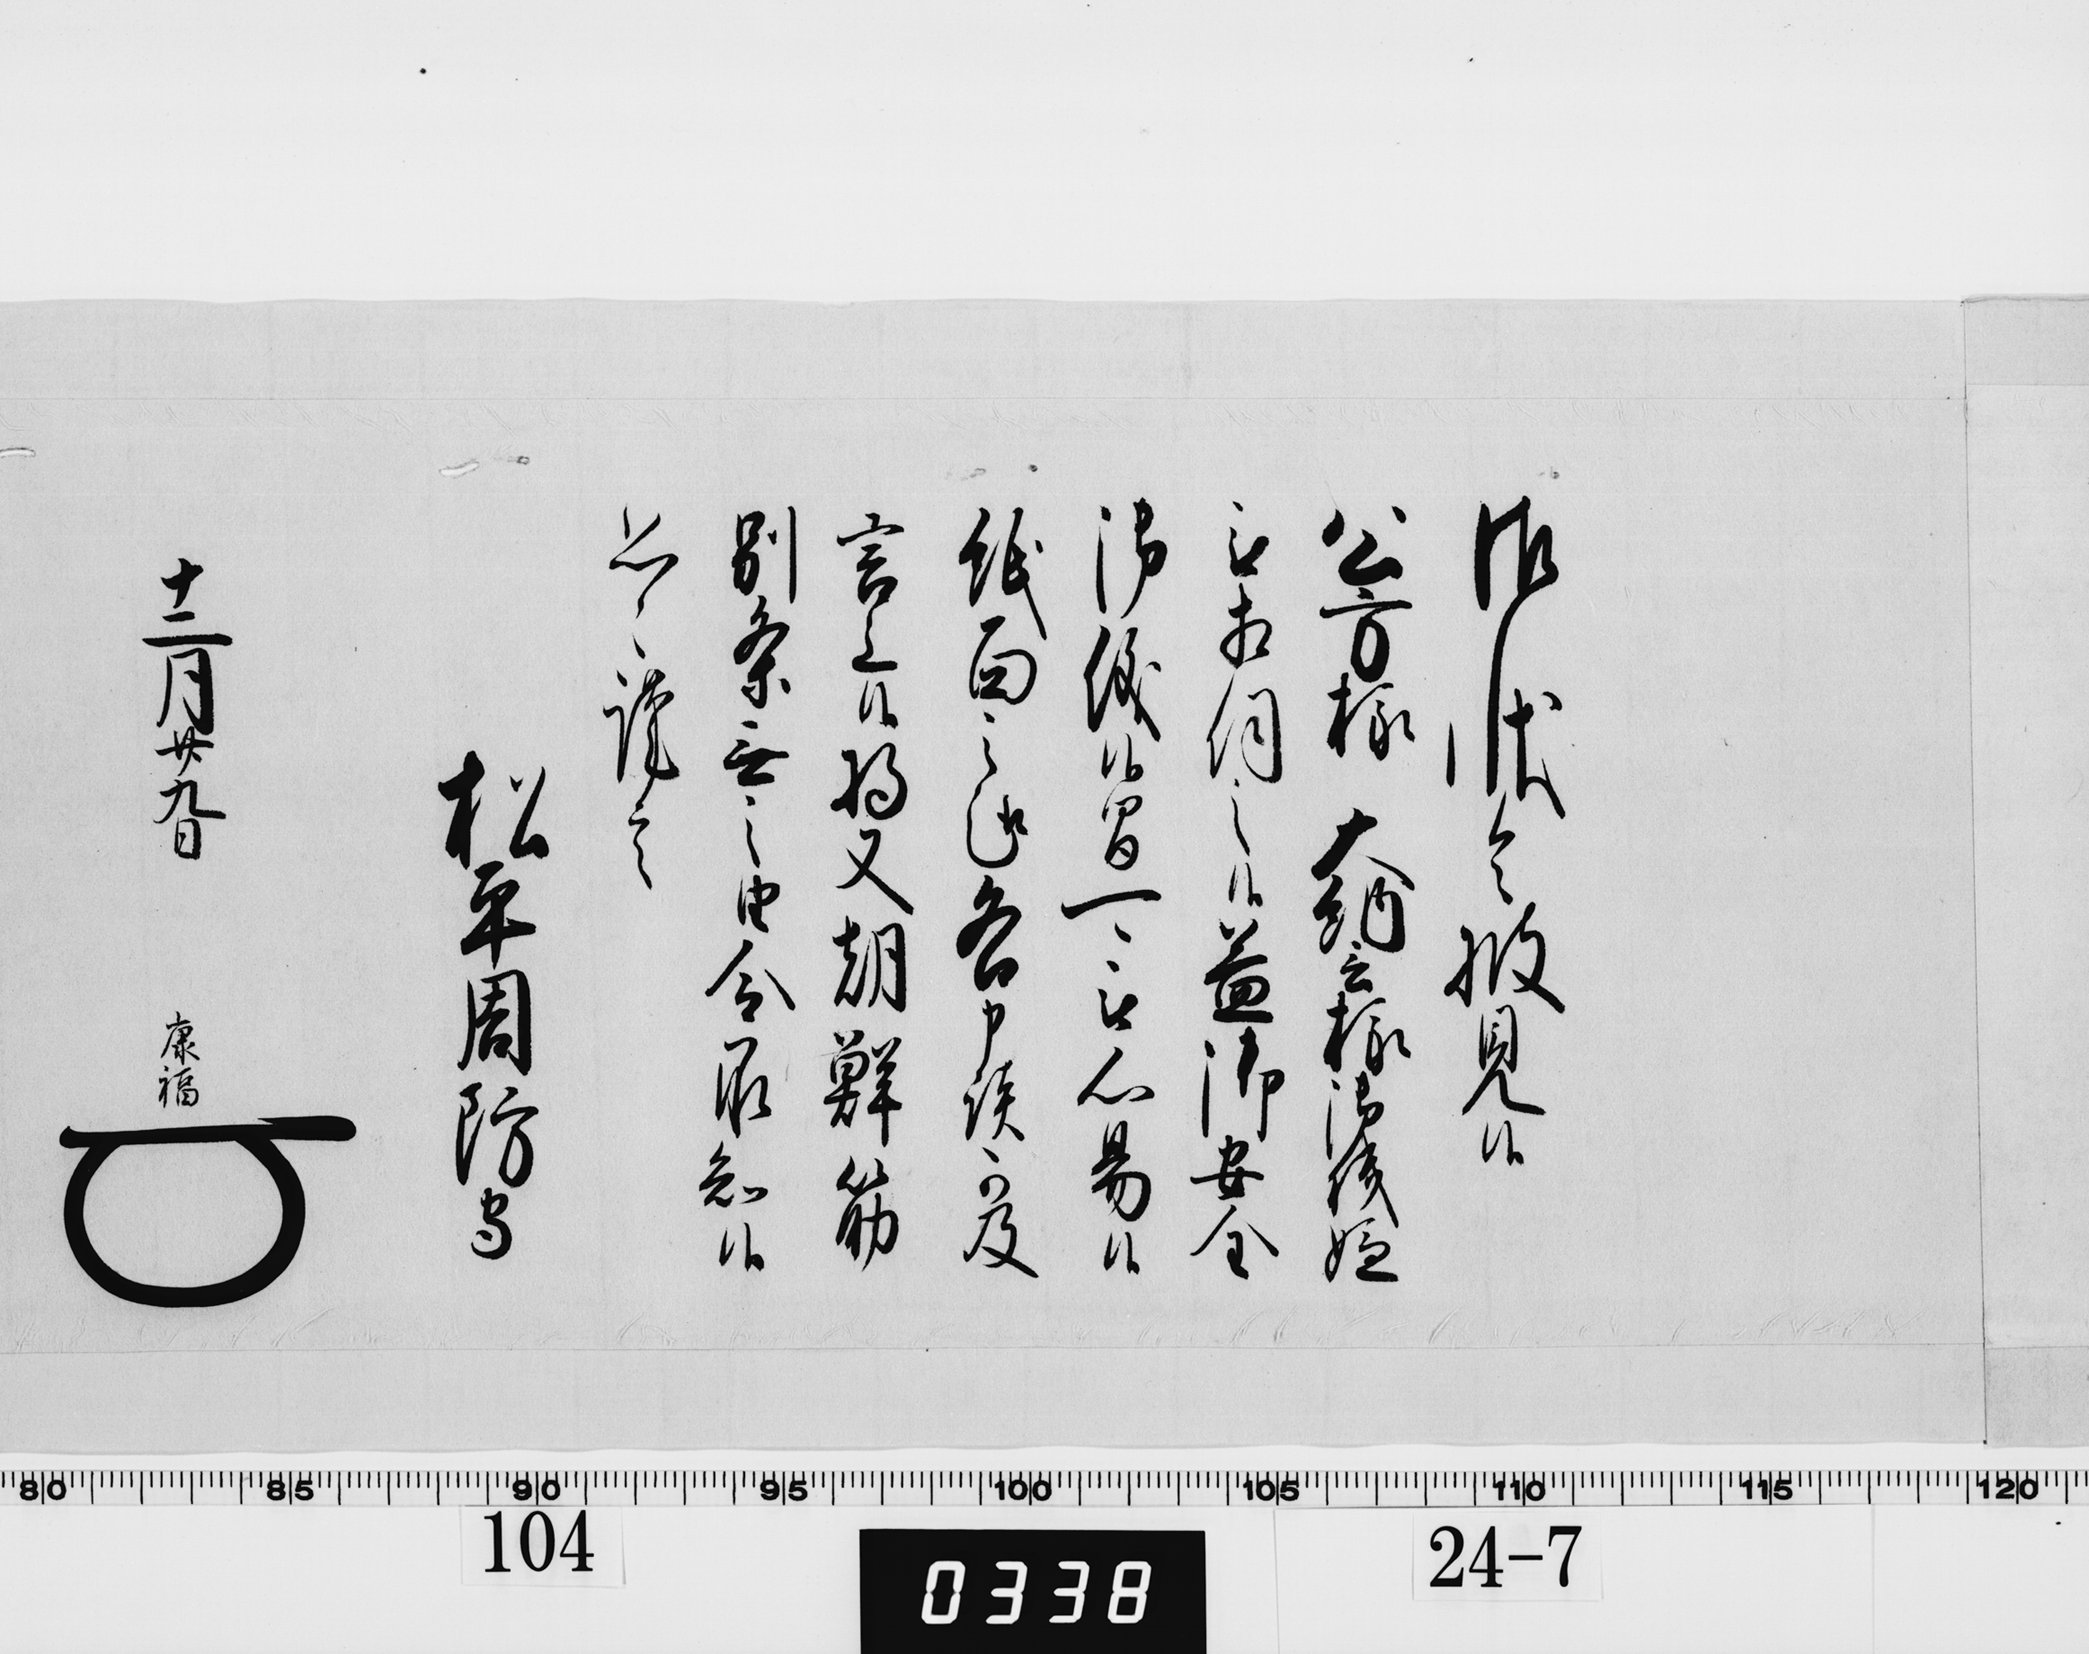 御状令披見候
公方様 大納言様御機嫌
被相伺之候益御安全
御儀候間可被心易候
紙面之趣各申談可及
言上候将又朝鮮筋
別条無之由令承知候
恐々謹言
松平周防守
十二月廿九日 康福
80 85 90 95 100 105 110 115 120
104
0338
24-7